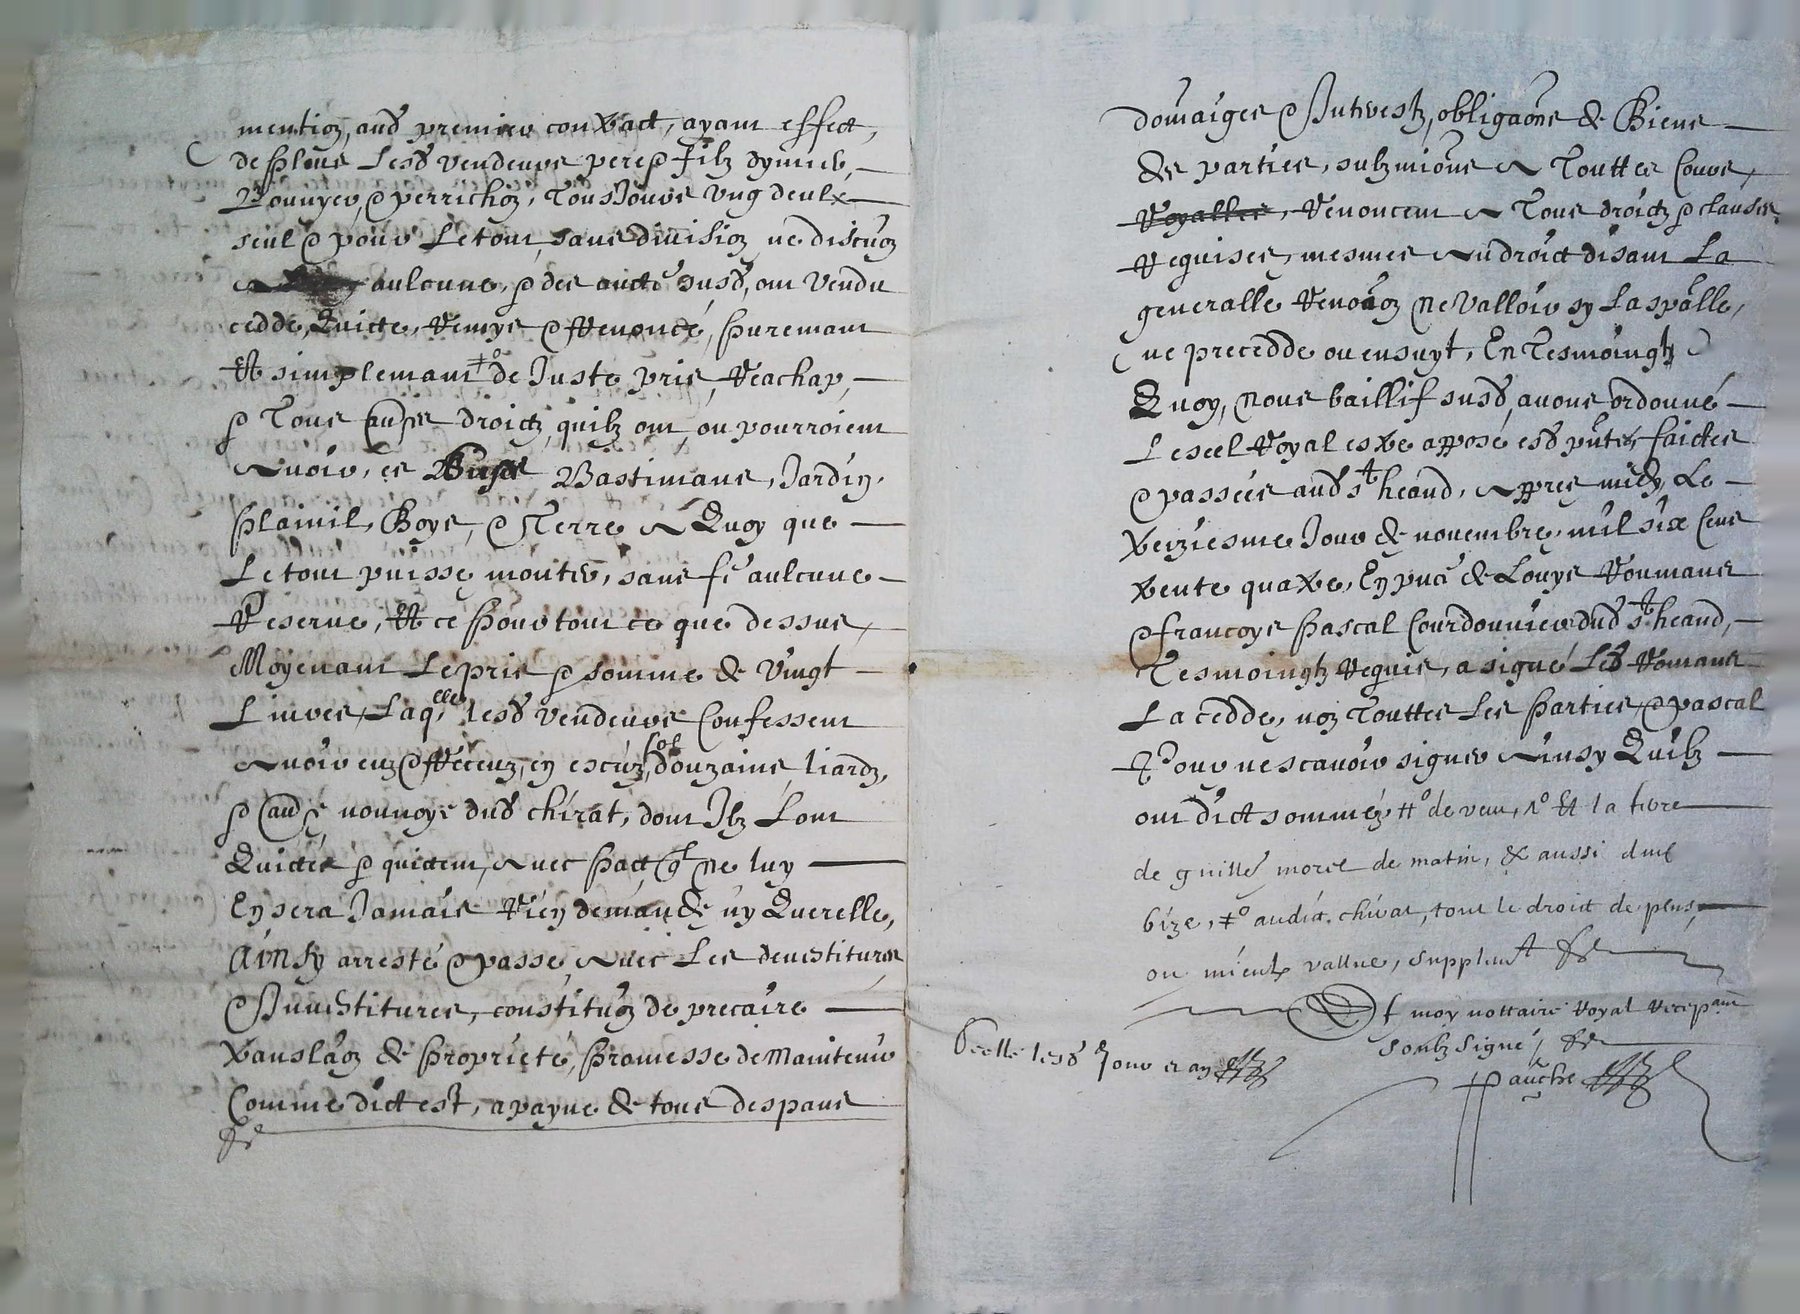 mention, aud premier contract, ayant effect,
de plus lesd vendeurs pere & filz dymier,
Pounyer, & perrichon, Tousjours ung deulx
seul & pour le tout, sans division, ne discuon
aulcune, & des auctes susd, ont vendu
cedde, Quicte, remys & Renoncé, puremant
Et simplemant de Juste pris, Reachap,
& Tous aultres droictz, quilz ont, ou pourroient
Avoir, es Bastimans, Jardin,
plainil, Boys, & Terre A Quoy que
Le tout puisse monter, sans fe aulcune
Reserve, Et ce pour tout ce que dessus,
Moyenant Le pris & somme de Vingt
Livres, Laqelle lesd vendeurs Confessent
Avoir euz & Receuz, en escuz, sol douzains, liardz,
& aultre monnoye dud chirat, dont Ilz Lont
Quicté & quictent, Avec pact q Ne luy
En sera Jamais Rien demandé ny Querelle,
Ainsy arresté & passé, Avec Les devestitures
& Investitures, constituon de precaire
translaon de proprieté, promesse de Maintenir
Comme dict est, a payne de tous despans
domaiges & Interestz, obligaons de Biens
des parties, submions A Touttes Cours,
Royalles, Renonceant A Tous droictz & clauses
Requises, mesmes Au droict disant La
generalle Renoaon Ne Valloir sy La spalle,
ne precedde ou ensuyt, En Tesmoingtz
Quoy, Nous baillif susd, avons ordonné
Le seel Royal estre apposé esd pntes, faictes
& passées aud st heand, Apres midy, Le
treiziesme Jour de novembre, mil six Cens
trente quatre, En pnce de Louys Roumans
& francoys pascal Courdonnier dud st heand,
Tesmoingtz requis, a signé Led Romans
La cedde, non Touttes Les parties, & pascal
Pour ne scavoir signer Ainsy Quilz
ont dict sommez de vent, Et la terre
de guille morel de matin, & aussi dud
bize, audict chirat, tout le droict de plus,
ou mieulx vallue, supplent
Et moy nottaire Royal recepvant
Soubz signé
Seelle lesd Jour et an
pauche